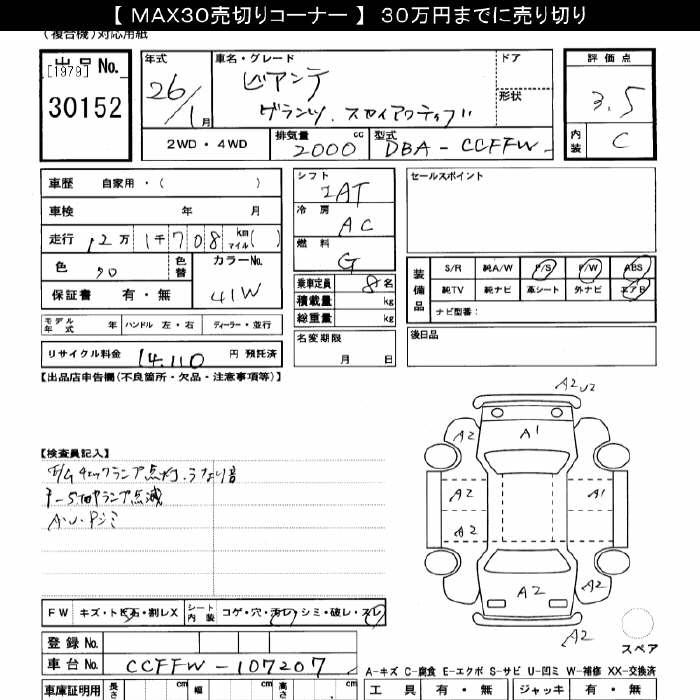 【 MAX30売切りコーナー 】 30万円までに売り切り
(複合機)対応用紙
出品 No.
[1979]
30152
年式
26/1月
車名・グレード
ビアンテ
グランツ．スカイアクティブ
ドア
形状
評価点
3.5
内装
C
2WD・4WD
排気量 2000 cc
型式 DBA-CCFFW
車歴 自家用・( )
車検 年 月
走行 12万 1千708 km マイル( )
色 クロ
色替
カラーNo.
41W
保証書 有・無
モデル年式 年 ハンドル 左・右 ディーラー・並行
リサイクル料金 14,110 円 預託済
シフト
IAT
冷房
AC
燃料
G
乗車定員 8名
積載量 kg
総重量 kg
名変期限
月 日
セールスポイント
装備品
S/R 純A/W P/S P/W ABS
純TV 純ナビ 革シート 外ナビ エアB
ナビ型番：
後日品
【出品店申告欄(不良箇所・欠品・注意事項等)】
【検査員記入】
E/Gチェックランプ点灯．うなり音
i-STOPランプ点滅
A・U・Pシミ
A2 U2
A2
A1
A2
A1
A2
A2
A2
A2
スペア
FW キズ・トビ石・割レX
シート内装 コゲ・穴・汚レ・シミ・破レ・スレ
登録 No.
車台 No. CCFFW-107207
車庫証明用 長さ cm 幅 cm 高さ cm
A-キズ C-腐食 E-エクボ S-サビ U-凹ミ W-補修 XX-交換済
工具 有・無 ジャッキ 有・無